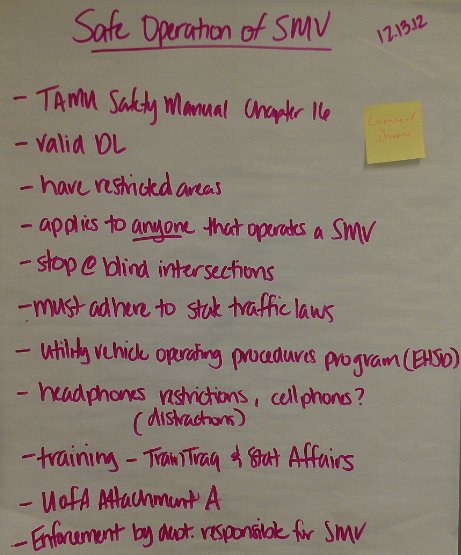 Safe Operation of SMV
12.13.12
- TAMU Safety Manual Chapter 16
Licensed
Drivers
- valid DL
- have restricted areas
- applies to anyone that operates a SMV
- stop @ blind intersections
- must adhere to state traffic laws
- utility vehicle operating procedures program (EHSD)
- headphones restrictions, cellphones?
(distractions)
- training - TrainTraq & Stat Affairs
- UofA Attachment A
- Enforcement by dept. responsible for SMV